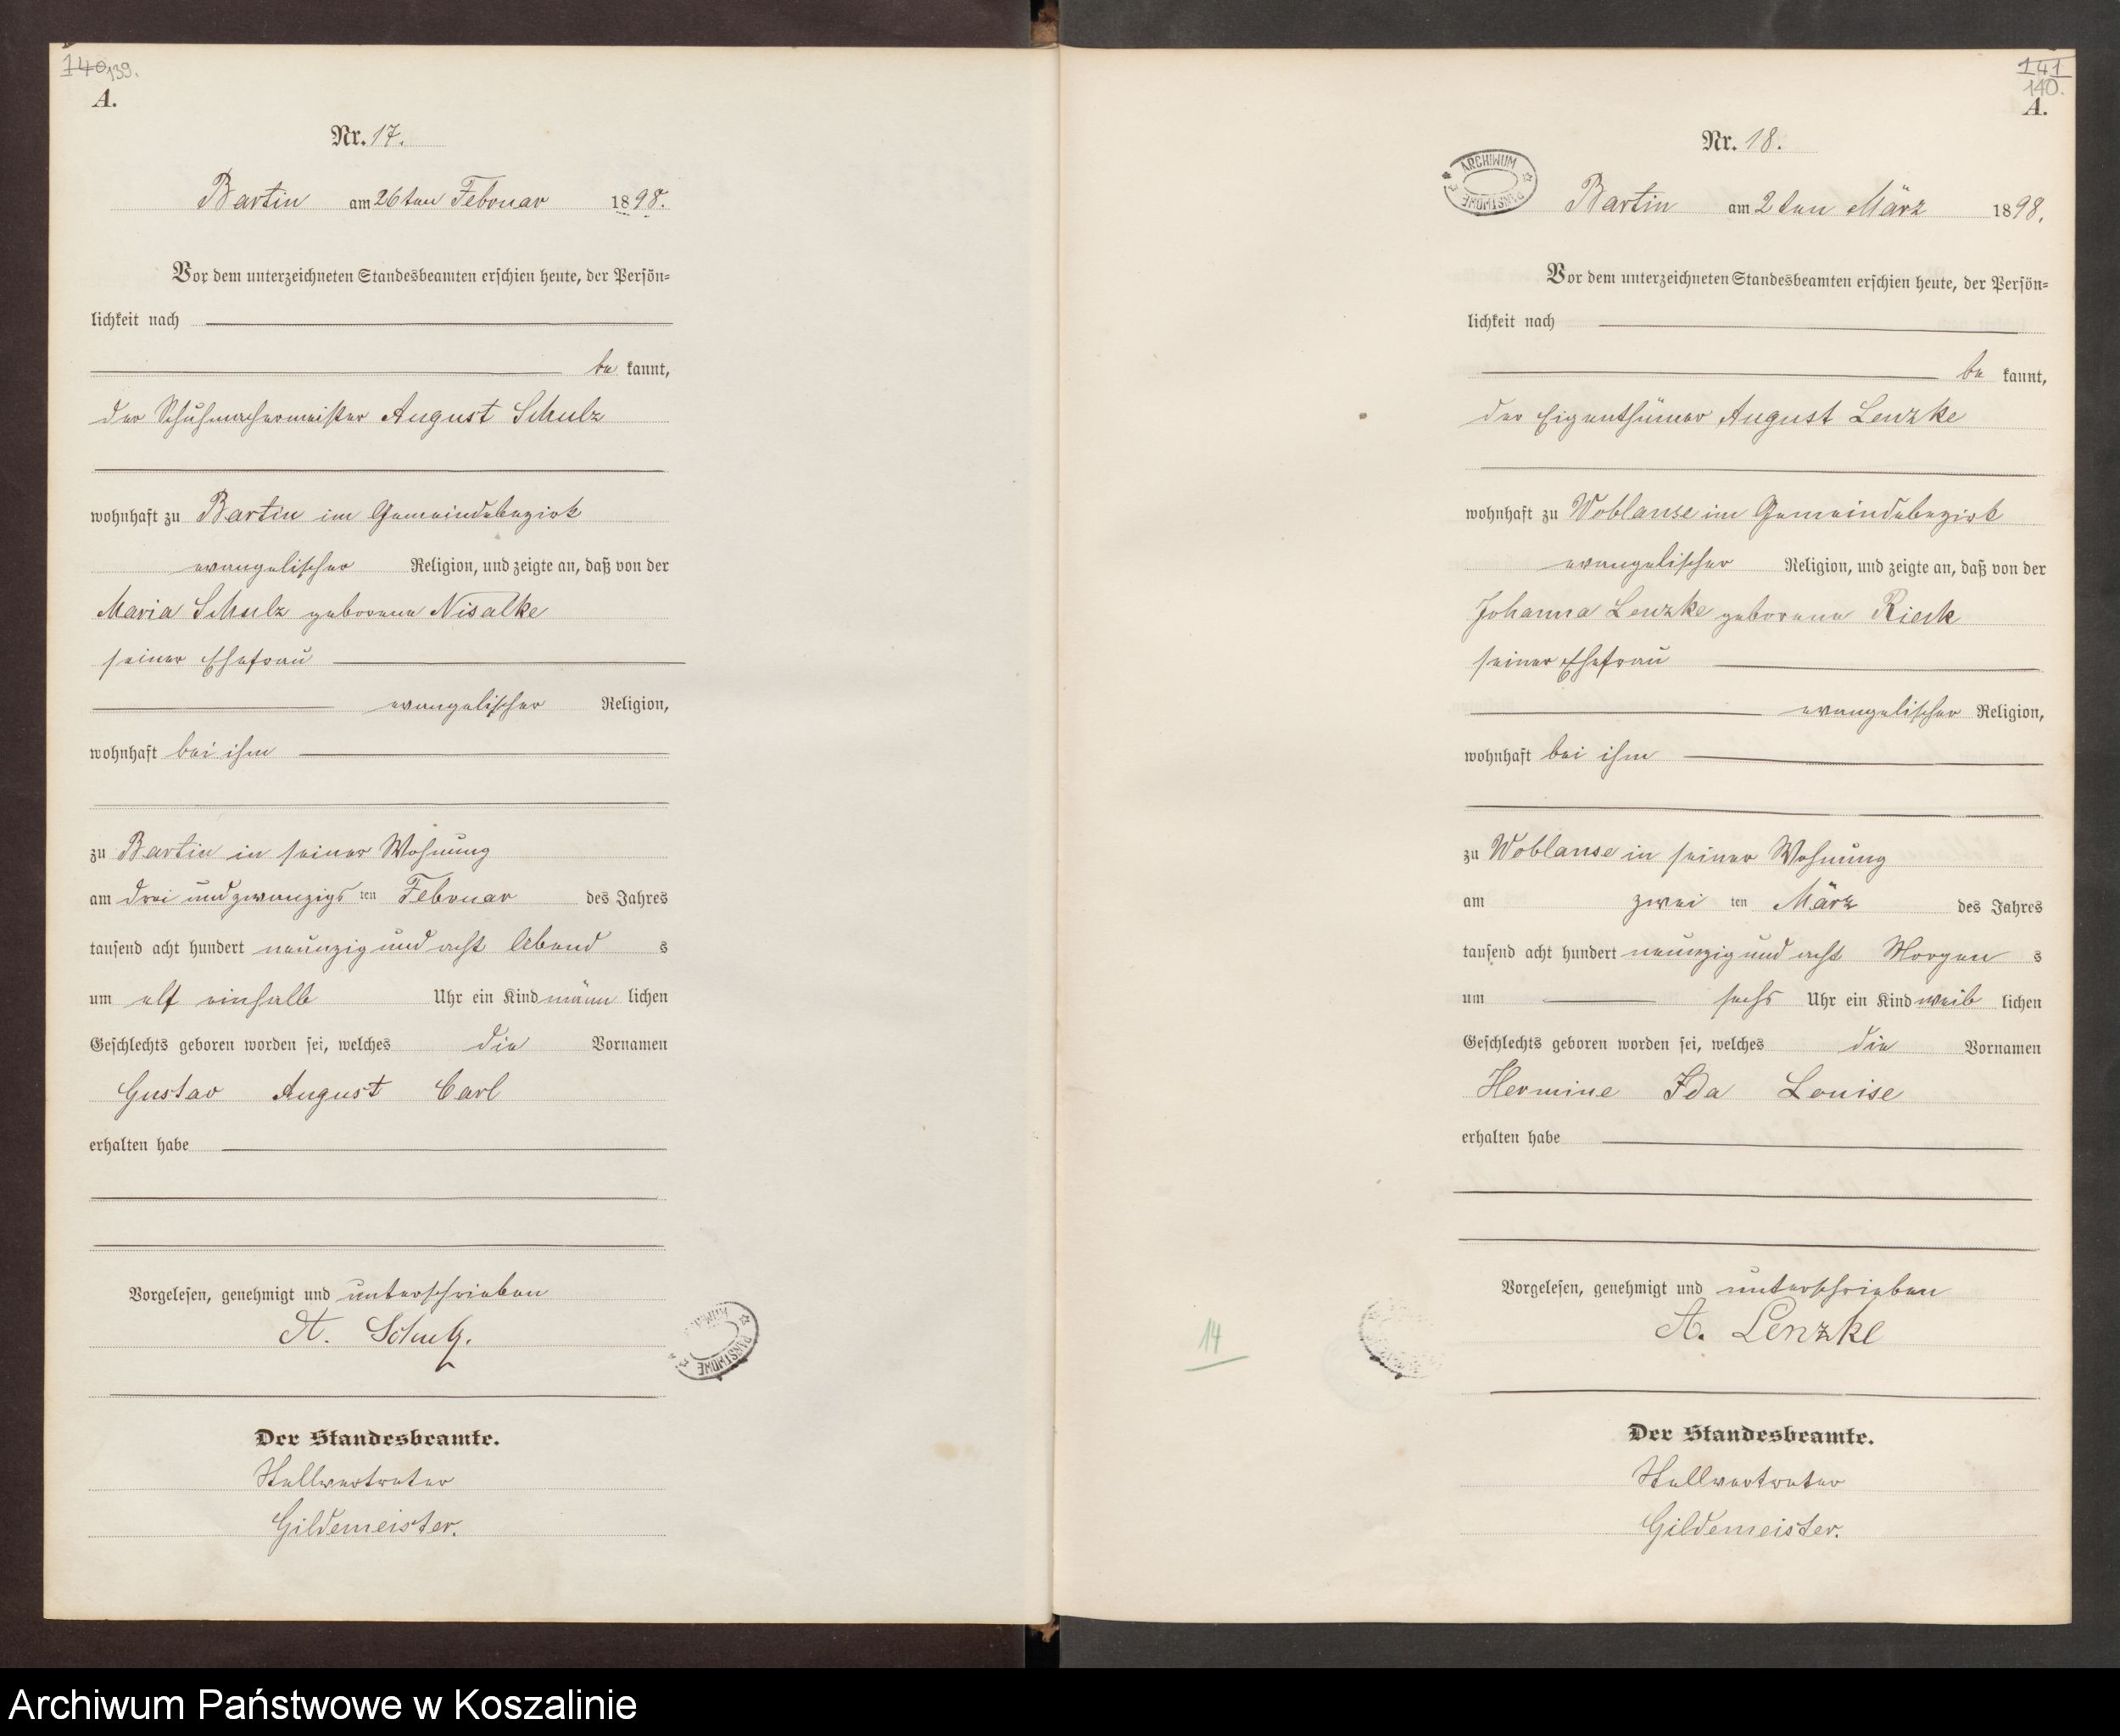 140 139.
A.
Nr. 17.
Bartin am 26ten Februar 1898.
Vor dem unterzeichneten Standesbeamten erschien heute, der Persön-
lichkeit nach
be kannt,
der Schuhmachermeister August Schulz
wohnhaft zu Bartin im Gemeindebezirk
evangelischer Religion, und zeigte an, daß von der
Maria Schulz geborene Nisalke
seiner Ehefrau
evangelischer Religion,
wohnhaft bei ihm
zu Bartin in seiner Wohnung
am drei und zwanzigs ten Februar des Jahres
tausend acht hundert neunzig und acht Abend s
um elf einhalb Uhr ein Kind männ lichen
Geschlechts geboren worden sei, welches die Vornamen
Gustav August Carl
erhalten habe
Vorgelesen, genehmigt und unterschrieben
A. Schulz.
Der Standesbeamte.
Stellvertreter
Gildemeister.
ARCHIWUM PAŃSTWOWE
14
141
140.
A.
Nr. 18.
ARCHIWUM PAŃSTWOWE
Bartin am 2ten März 1898.
Vor dem unterzeichneten Standesbeamten erschien heute, der Persön-
lichkeit nach
be kannt,
der Eigenthümer August Lenzke
wohnhaft zu Woblanse im Gemeindebezirk
evangelischer Religion, und zeigte an, daß von der
Johanna Lenzke geborene Rieck
seiner Ehefrau
evangelischer Religion,
wohnhaft bei ihm
zu Woblanse in seiner Wohnung
am zwei ten März des Jahres
tausend acht hundert neunzig und acht Morgen s
um sechs Uhr ein Kind weib lichen
Geschlechts geboren worden sei, welches die Vornamen
Hermine Ida Louise
erhalten habe
Vorgelesen, genehmigt und unterschrieben
A. Lenzke
Der Standesbeamte.
Stellvertreter
Gildemeister.
Archiwum Państwowe w Koszalinie